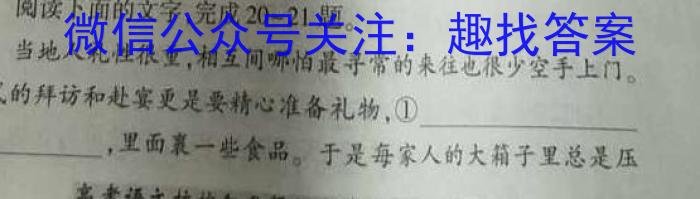 阅读下面的文字,完成20~21题。
微信公众号关注：趣找答案
当地人礼性很重,相互间哪怕最寻常的来往也很少空手上门。
的拜访和赴宴更是要精心准备礼物,①
,里面裹一些食品。于是每家人的大箱子里总是压